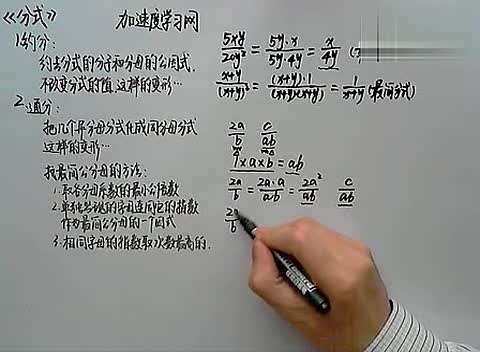 《分式》
加速度学习网
1.约分:
约去分式的分子和分母的公因式,
不改变分式的值,这样的变形…
2.通分:
把几个异分母分式化成同分母分式
这样的变形…
找最简公分母的方法:
1.取各分母系数的最小公倍数
2.单独出现的字母连同它的指数
作为最简公分母的一个因式
3.相同字母的指数取次数最高的.
5xy/20y² = 5y·x/5y·4y = x/4y
x+y/(x+y)² = (x+y)·1/(x+y)(x+y) = 1/x+y (最简分式)
2a/b c/ab
1×a×b=ab
2a/b = 2a·a/ab = 2a²/ab c/ab
2/b